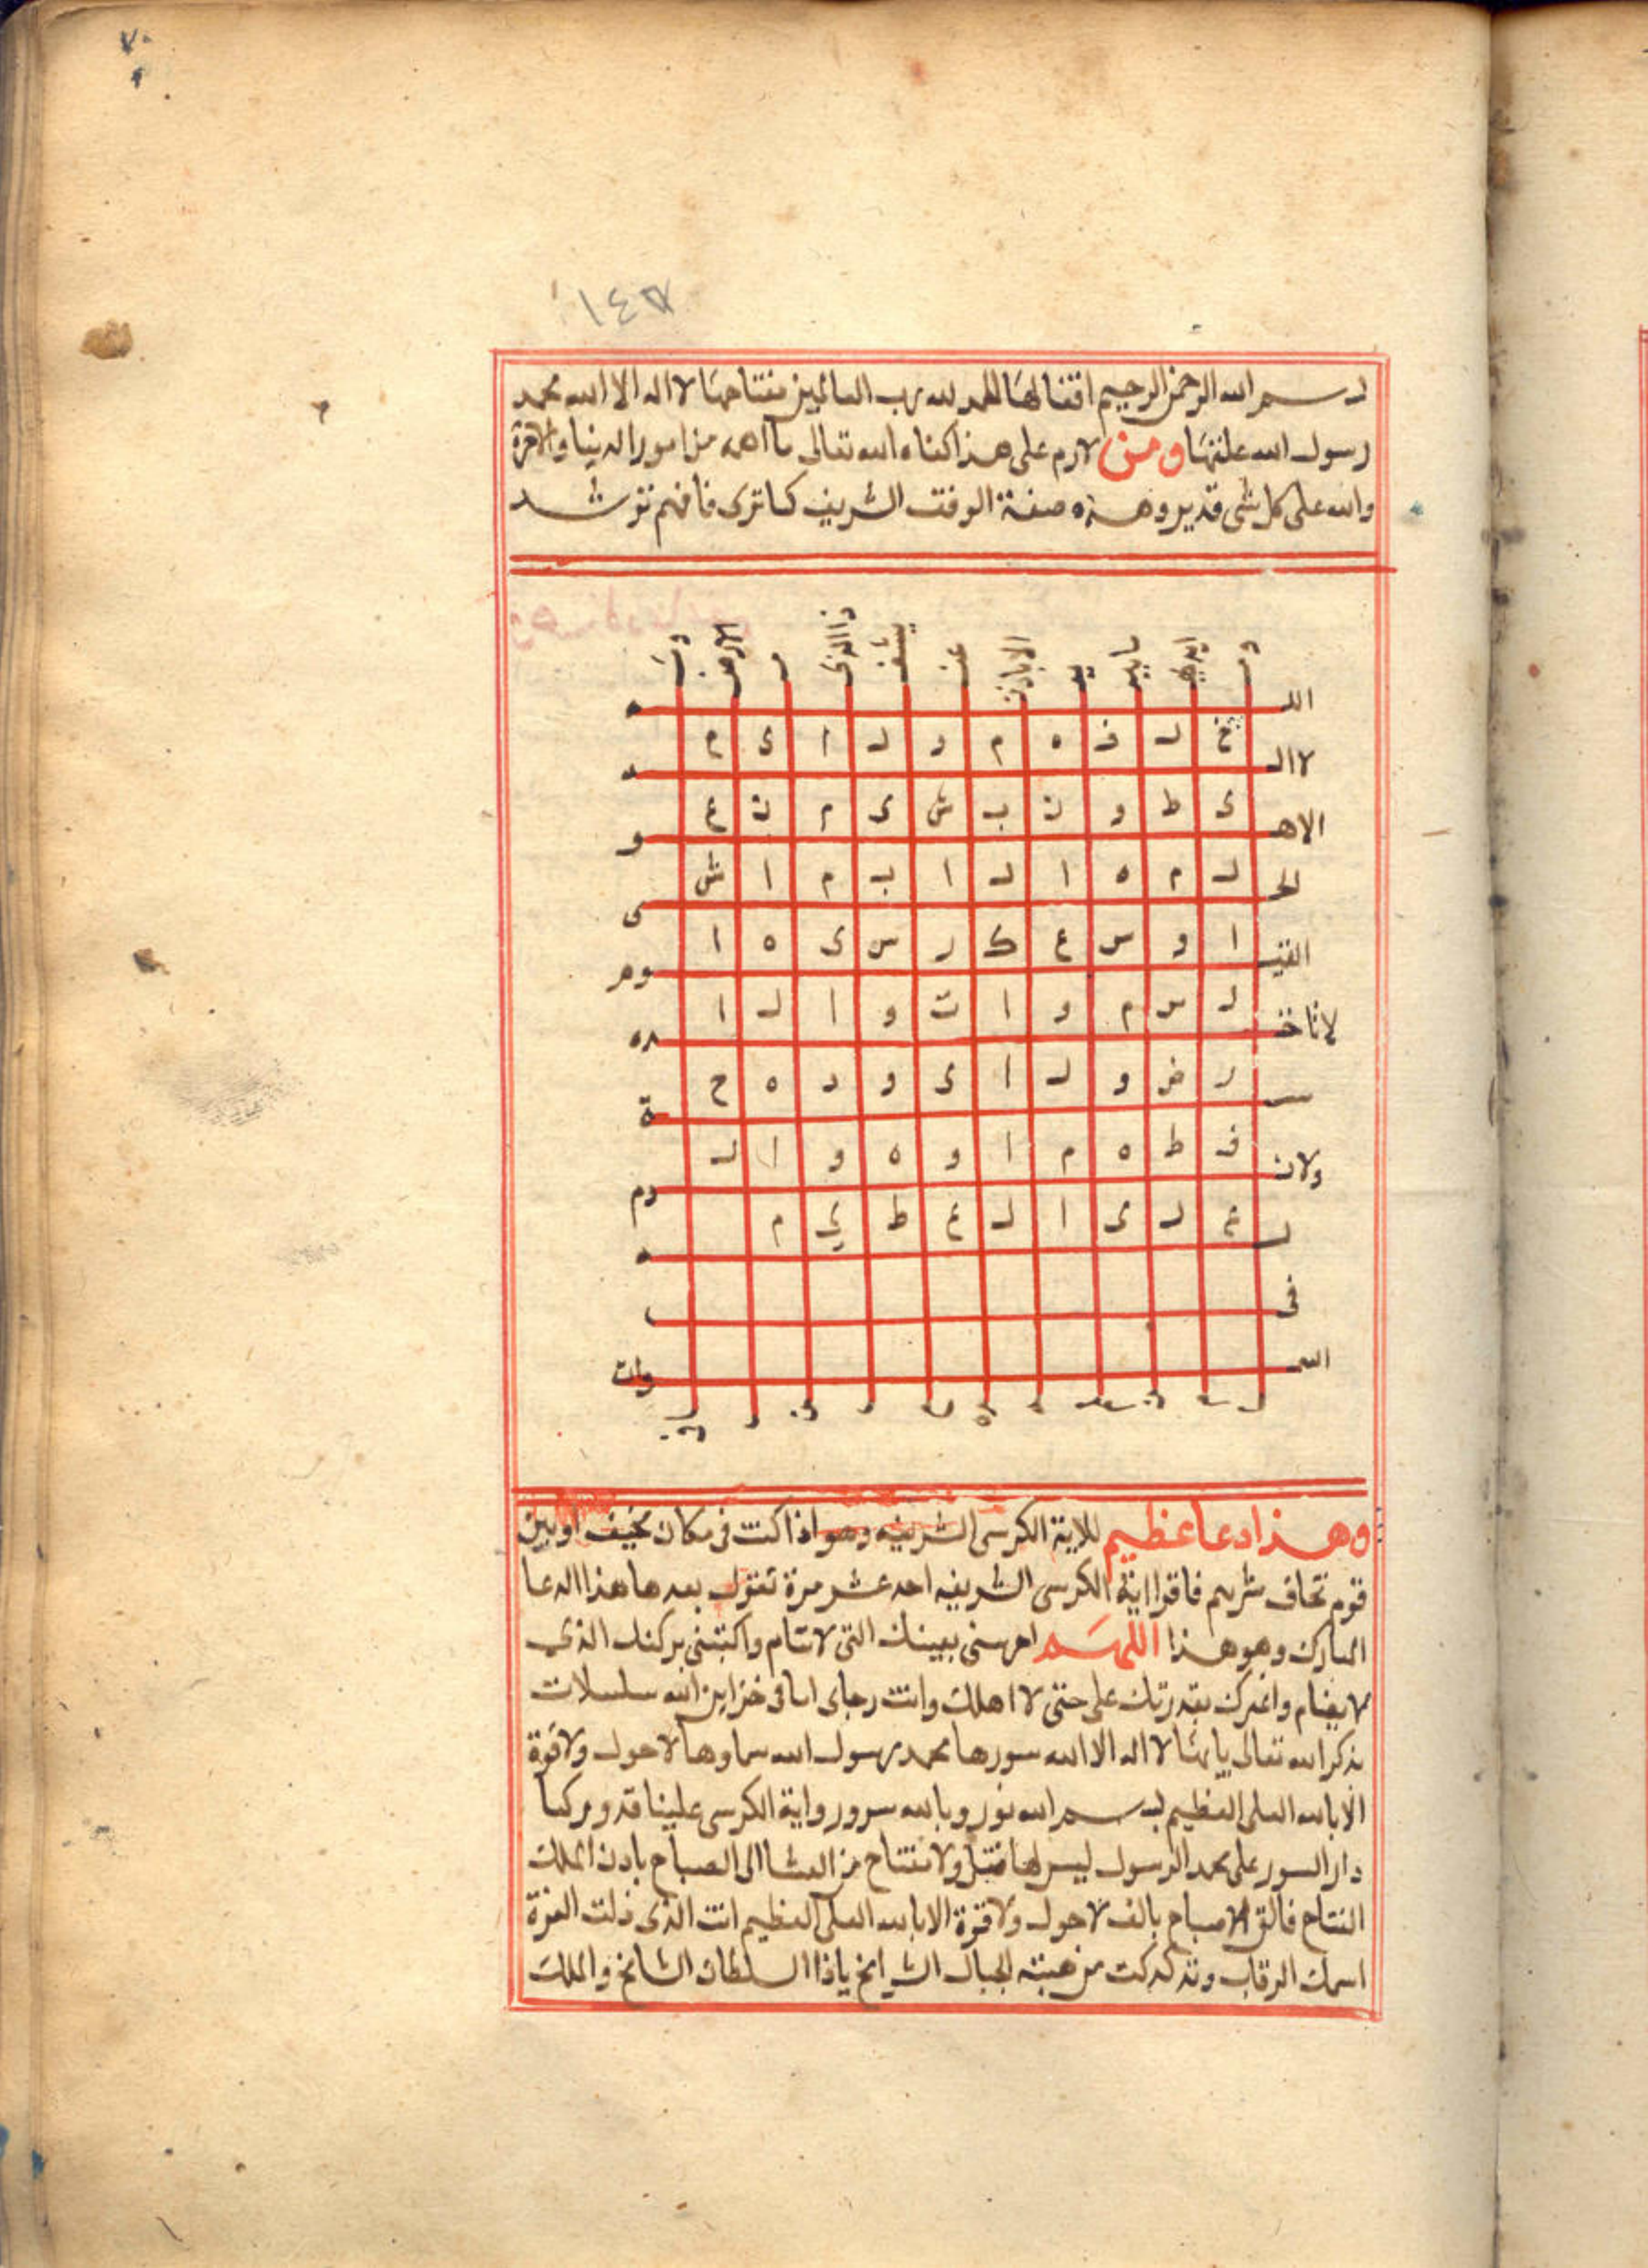 ٧٠
١٤٧
بسم الله الرحمن الرحيم اقفالها الحمد لله رب العالمين مفتاحها لا اله الا الله محمد
رسول الله علتها ومن لازم على هذا كفاه الله تعالى ما اهمه من امور الدنيا والاخرة
والله على كل شى قدير وهذه صفة الوفق الشريف كما ترى فافهم ترشد
وت الارض م ذا الذى يشفع عند الا باذن يد ما بين ايديهم وم
الل ه
خ ل ف ه م و ل ا ى م
لا ال ه
ى ط و ن ب ش ى م ن ع
الا ه و
ل م ه ا ل ا ب م ا ش
الح ى
ا و س ع ك ر س ى ه ا
القيـ وم
ل س م و ا ت و ا ل ا
لا تاخذ ه
ر ض و ل ا ى و د ه ح
سـ ة
ف ط ه م ا و ه و ا ل
ولا نـ وم
ع ل ى ا ل ع ظ ي م
ل ه
فى
السـ وات
وهذا دعا عظيم للاية الكرسى الشريفه وهو اذا كنت فى مكان مخيف او بين
قوم تخاف شرهم فاقرا اية الكرسى الشريفه احد عشر مرة تقول بعدها هذا الدعا
المبارك وهو هذا اللهم احرسنى بعينك التى لا تنام واكنفنى بركنك الذى
لا يضام واغيرك بقدرتك على حتى لا اهلك وانت رجاى اسا فى خزاين الله سلسلات
بذكر الله تعالى يابها لا اله الا الله سورها محمد رسول الله سماوها لا حول ولا قوة
الا بالله العلى العظيم بسم الله نور وبالله سرور واية الكرسى علينا تدور كما
دار السور على محمد الرسول ليس لها قفل ولا مفتاح من العشا الى الصباح باذن الملك
الفتاح فالق الاصباح بالف لا حول ولا قوة الا بالله العلى العظيم انت الذى ذلت العزة
اسمك الرقاب وتدكدكت من هيبته الجبال الشرامخ ياذا السلطان الشامخ والملك